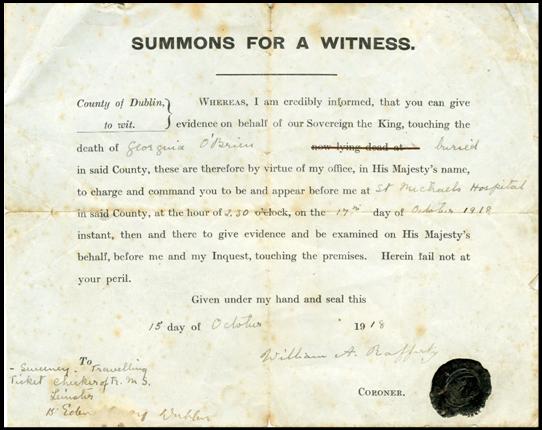 SUMMONS FOR A WITNESS.
County of Dublin, } WHEREAS, I am credibly informed, that you can give
to wit. evidence on behalf of our Sovereign the King, touching the
death of Georgina O'Brien now lying dead at buried
in said County, these are therefore by virtue of my office, in His Majesty's name,
to charge and command you to be and appear before me at St Michaels Hospital
in said County, at the hour of 2.30 o'clock, on the 17th day of October 1918
instant, then and there to give evidence and be examined on His Majesty's
behalf, before me and my Inquest, touching the premises. Herein fail not at
your peril.
Given under my hand and seal this
15 day of October 1918
William A. Rafferty
CORONER.
To
- Sweeney. Travelling
Ticket Checker of R. M. S.
Leinster
15 Eden Dublin